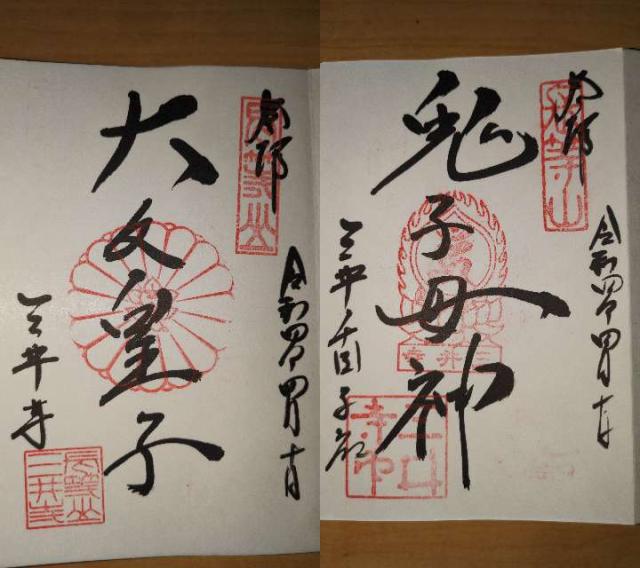 奉拝
長等山
令和四年四月十日
大友皇子
三井寺
長等山
三井寺
奉拝
長等山
令和四年四月十日
鬼子母神
三井寺
三井千団子社